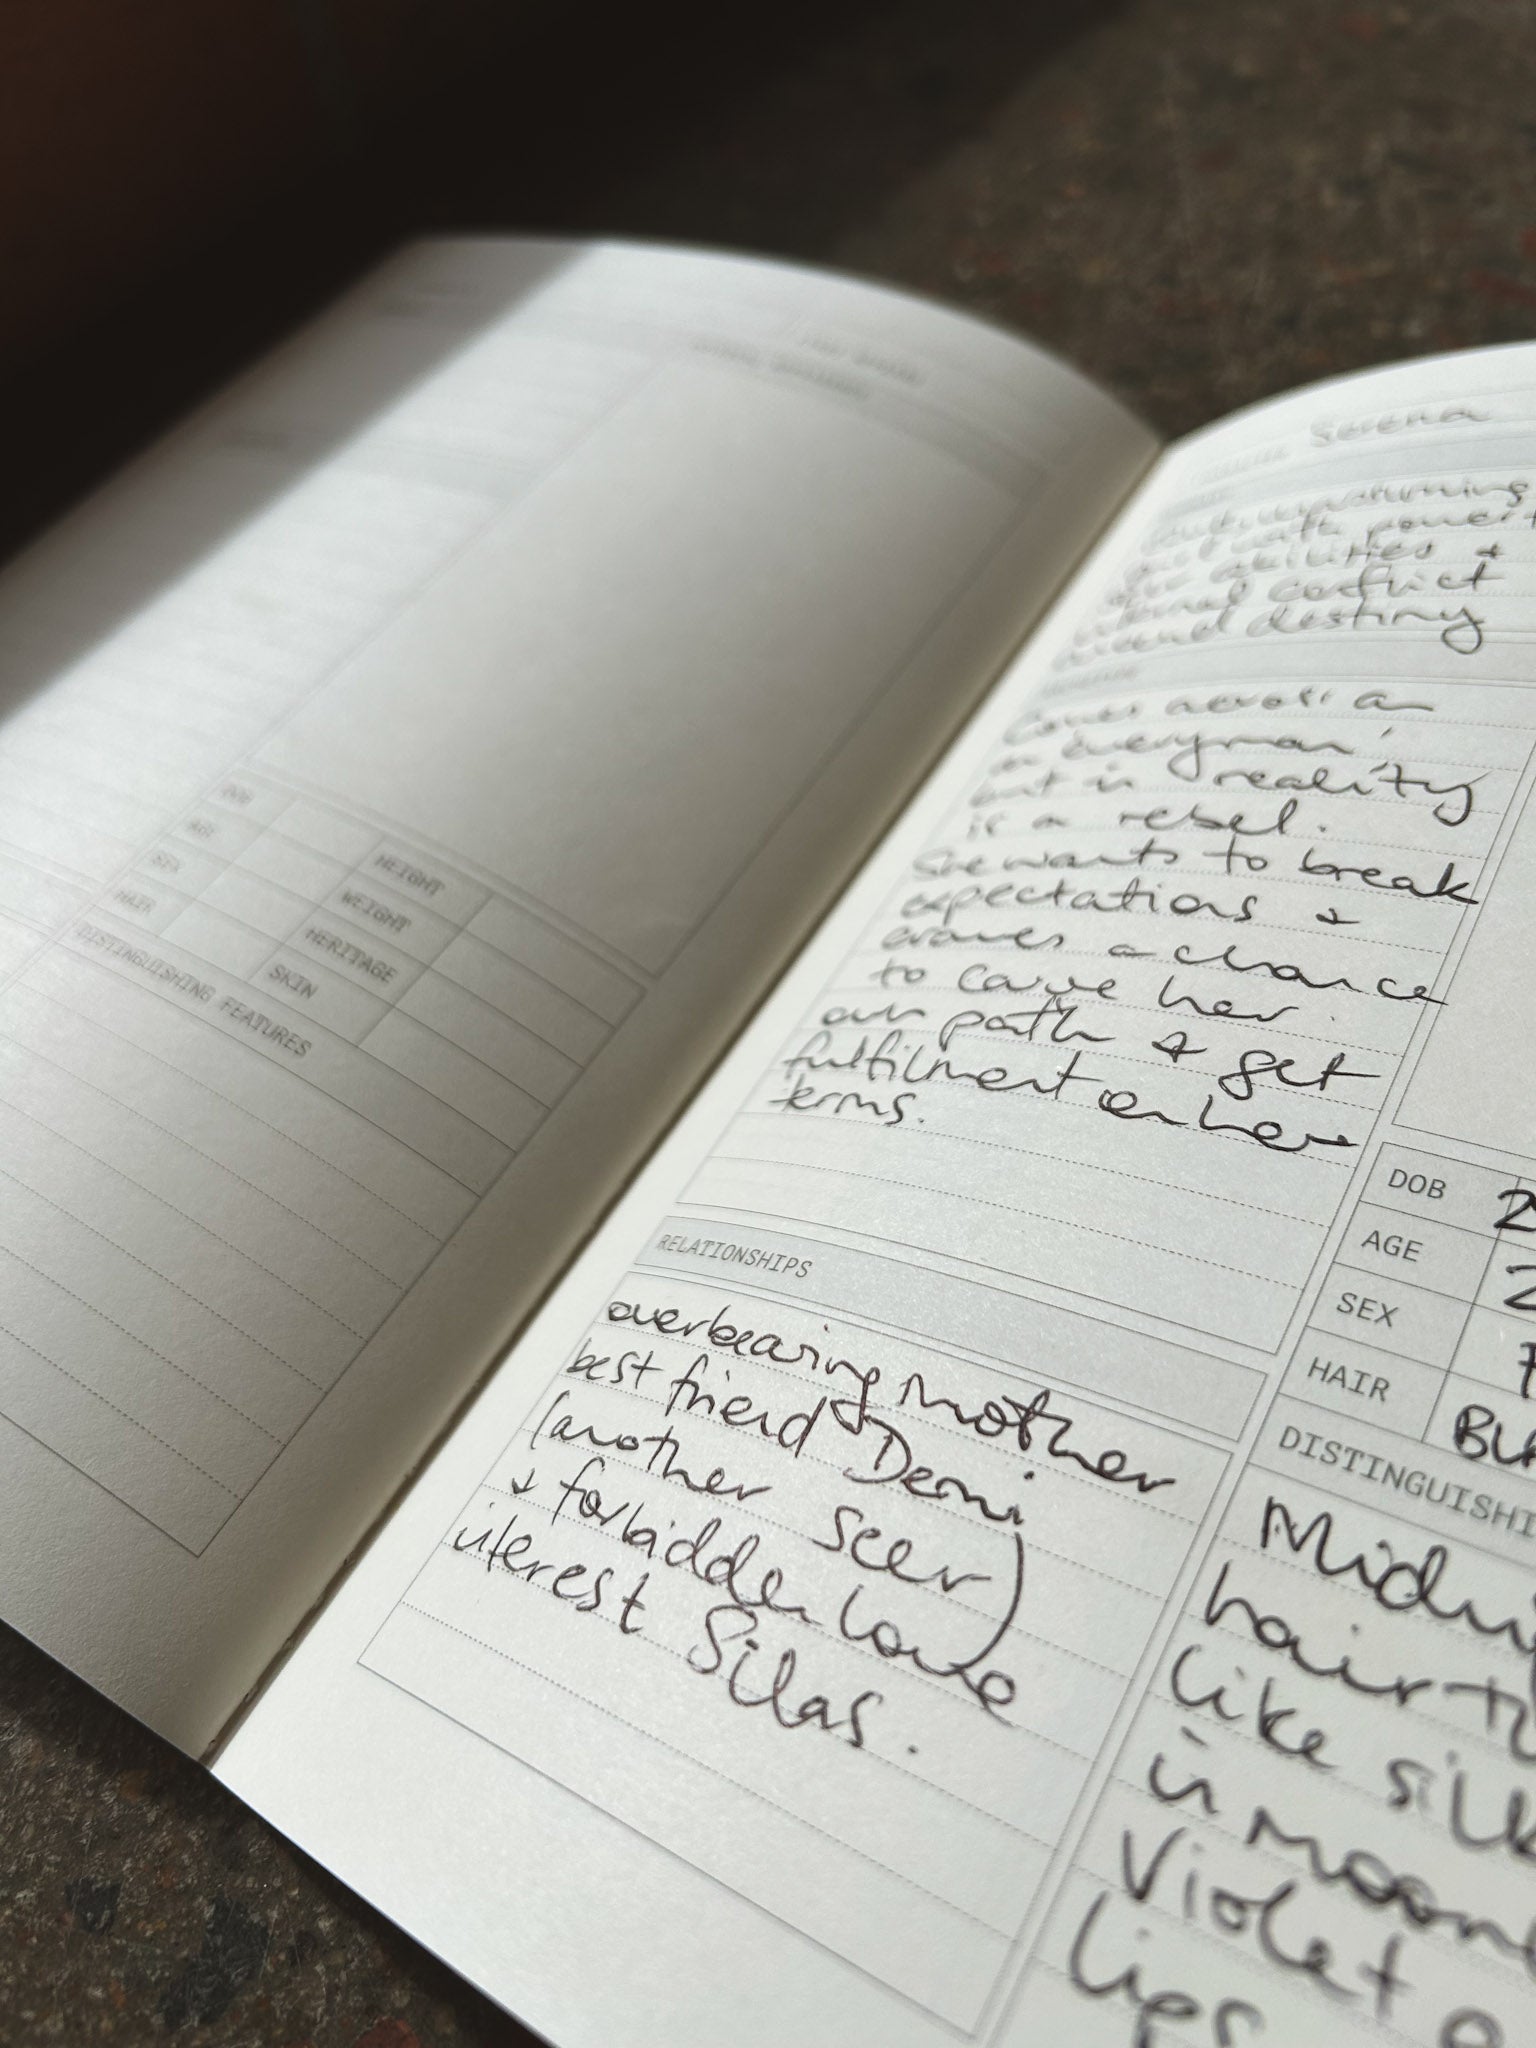 HEIGHT
WEIGHT
HERITAGE
SKIN
SEX
HAIR
DISTINGUISHING FEATURES
Serena
with power
abilities &
internal conflict
around destiny
Comes across an
everyman,
but in reality
is a rebel.
She wants to break
expectations &
craves a chance
to carve her
own path & get
fulfilment on her
terms.
RELATIONSHIPS
overbearing mother
best friend Demi
(another seer)
& forbidden love
interest Silas.
DOB 2
AGE 2
SEX F
HAIR
hair
like
in
Violet
lips